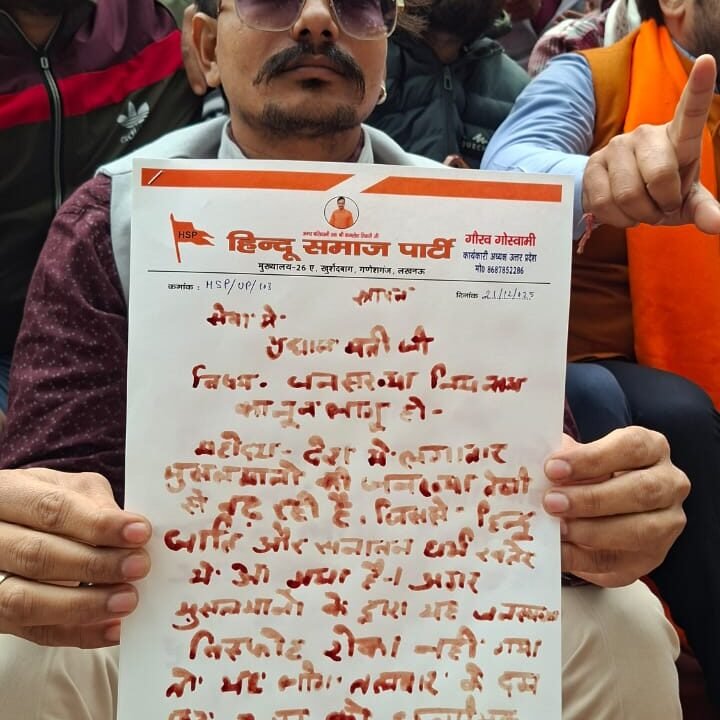 अमर बलिदानी स्व. श्री कमलेश तिवारी जी
HSP
हिन्दू समाज पार्टी
गौरव गोस्वामी
कार्यकारी अध्यक्ष उत्तर प्रदेश
मो0 8687852286
मुख्यालय-26 ए, खुर्शेदबाग, गणेशगंज, लखनऊ
क्रमांक: HSP/UP/103
दिनांक 21/12/025
ज्ञापन
सेवा में
प्रधान मंत्री जी
विषय- जनसंख्या नियंत्रण
कानून लागु हो-
महोदय- देश में लगातार
मुसलमानो की जनसंख्या तेजी
से बढ़ रही है, जिससे हिन्दू
जाति और सनातन धर्म खतरे
में आ गया है। अगर
मुसलमानो के द्वारा यह जनसंख्या
विस्फोट रोका नही गया
तो यह लोग तलवार के दम